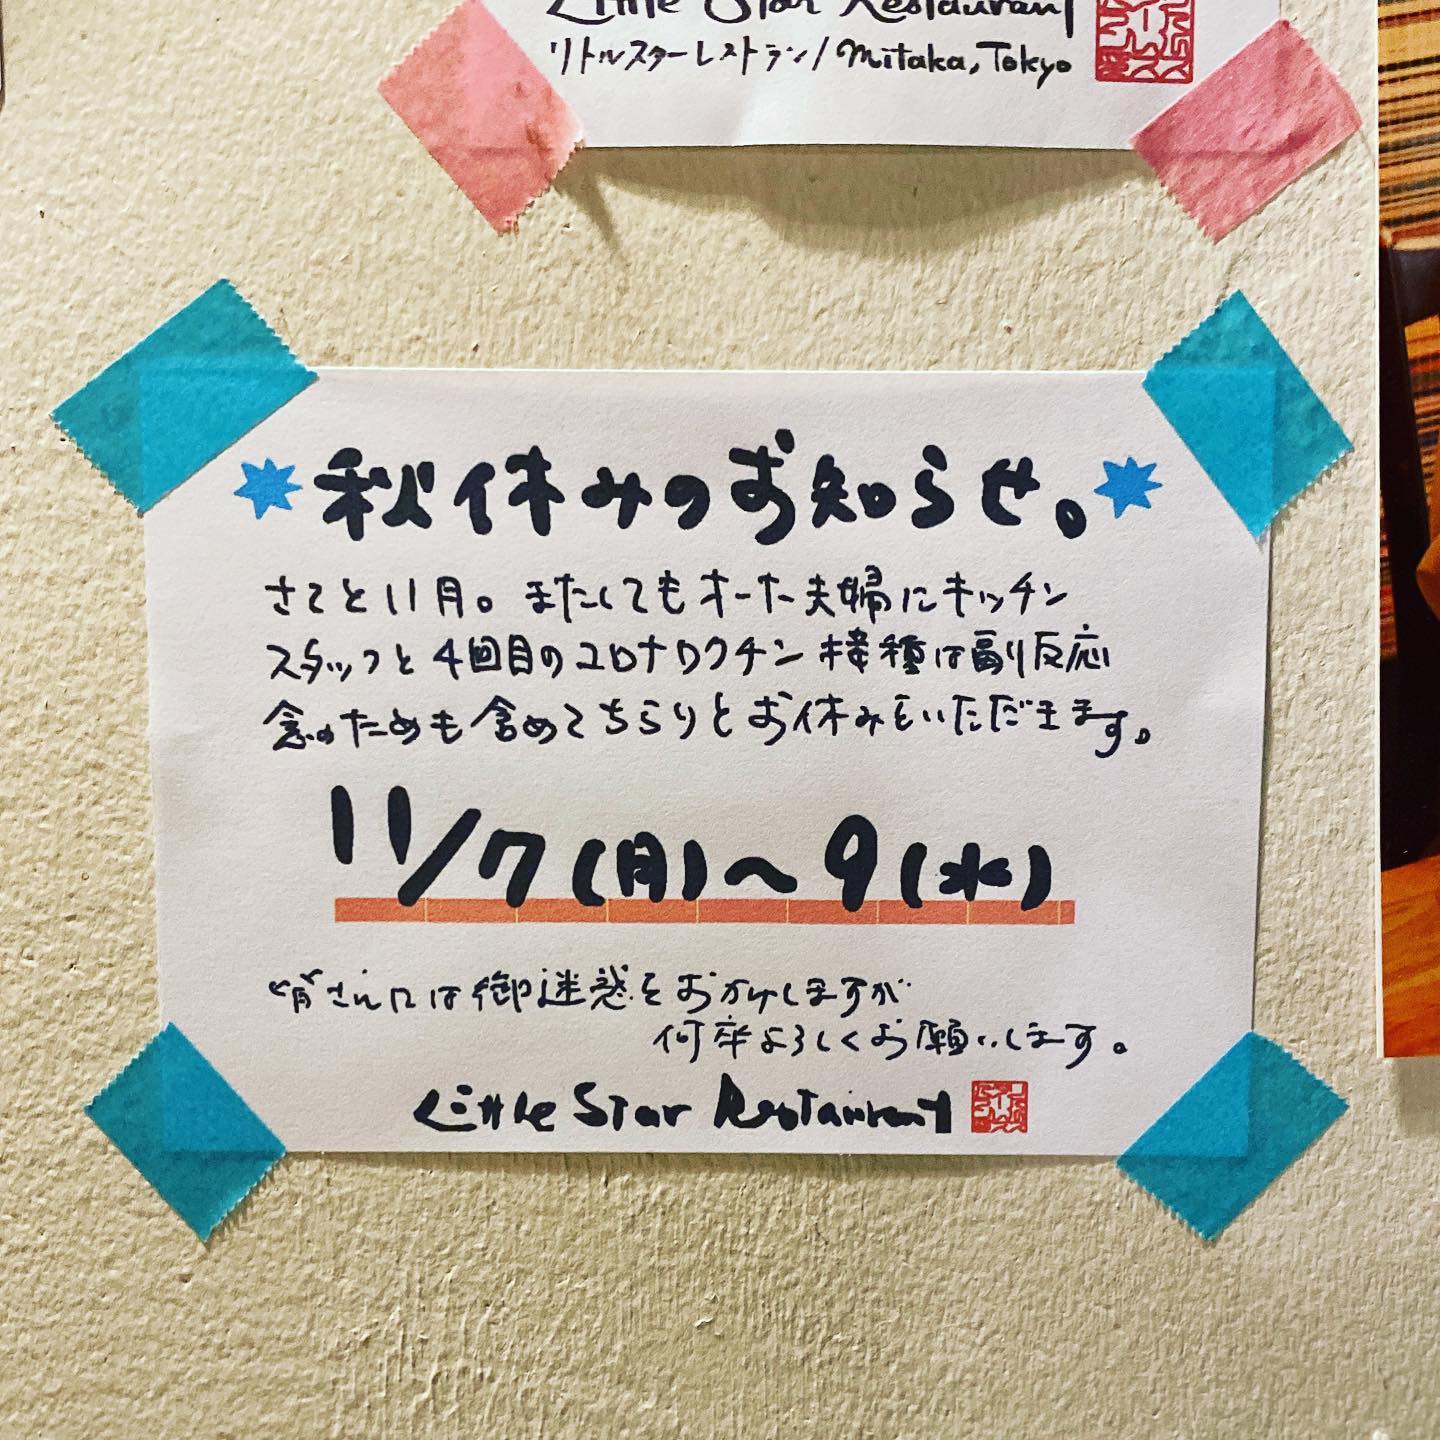 Little Star Restaurant
リトルスターレストラン/mitaka, Tokyo
秋休みのお知らせ。
さてと11月。またしてもオーナー夫婦にキッチン
スタッフと4回目のコロナワクチン接種は副反応
念のためも含めてちらりとお休みをいただきます。
11/7(月)〜9(水)
皆さんには御迷惑をおかけしますが
何卒よろしくお願いします。
Little Star Restaurant